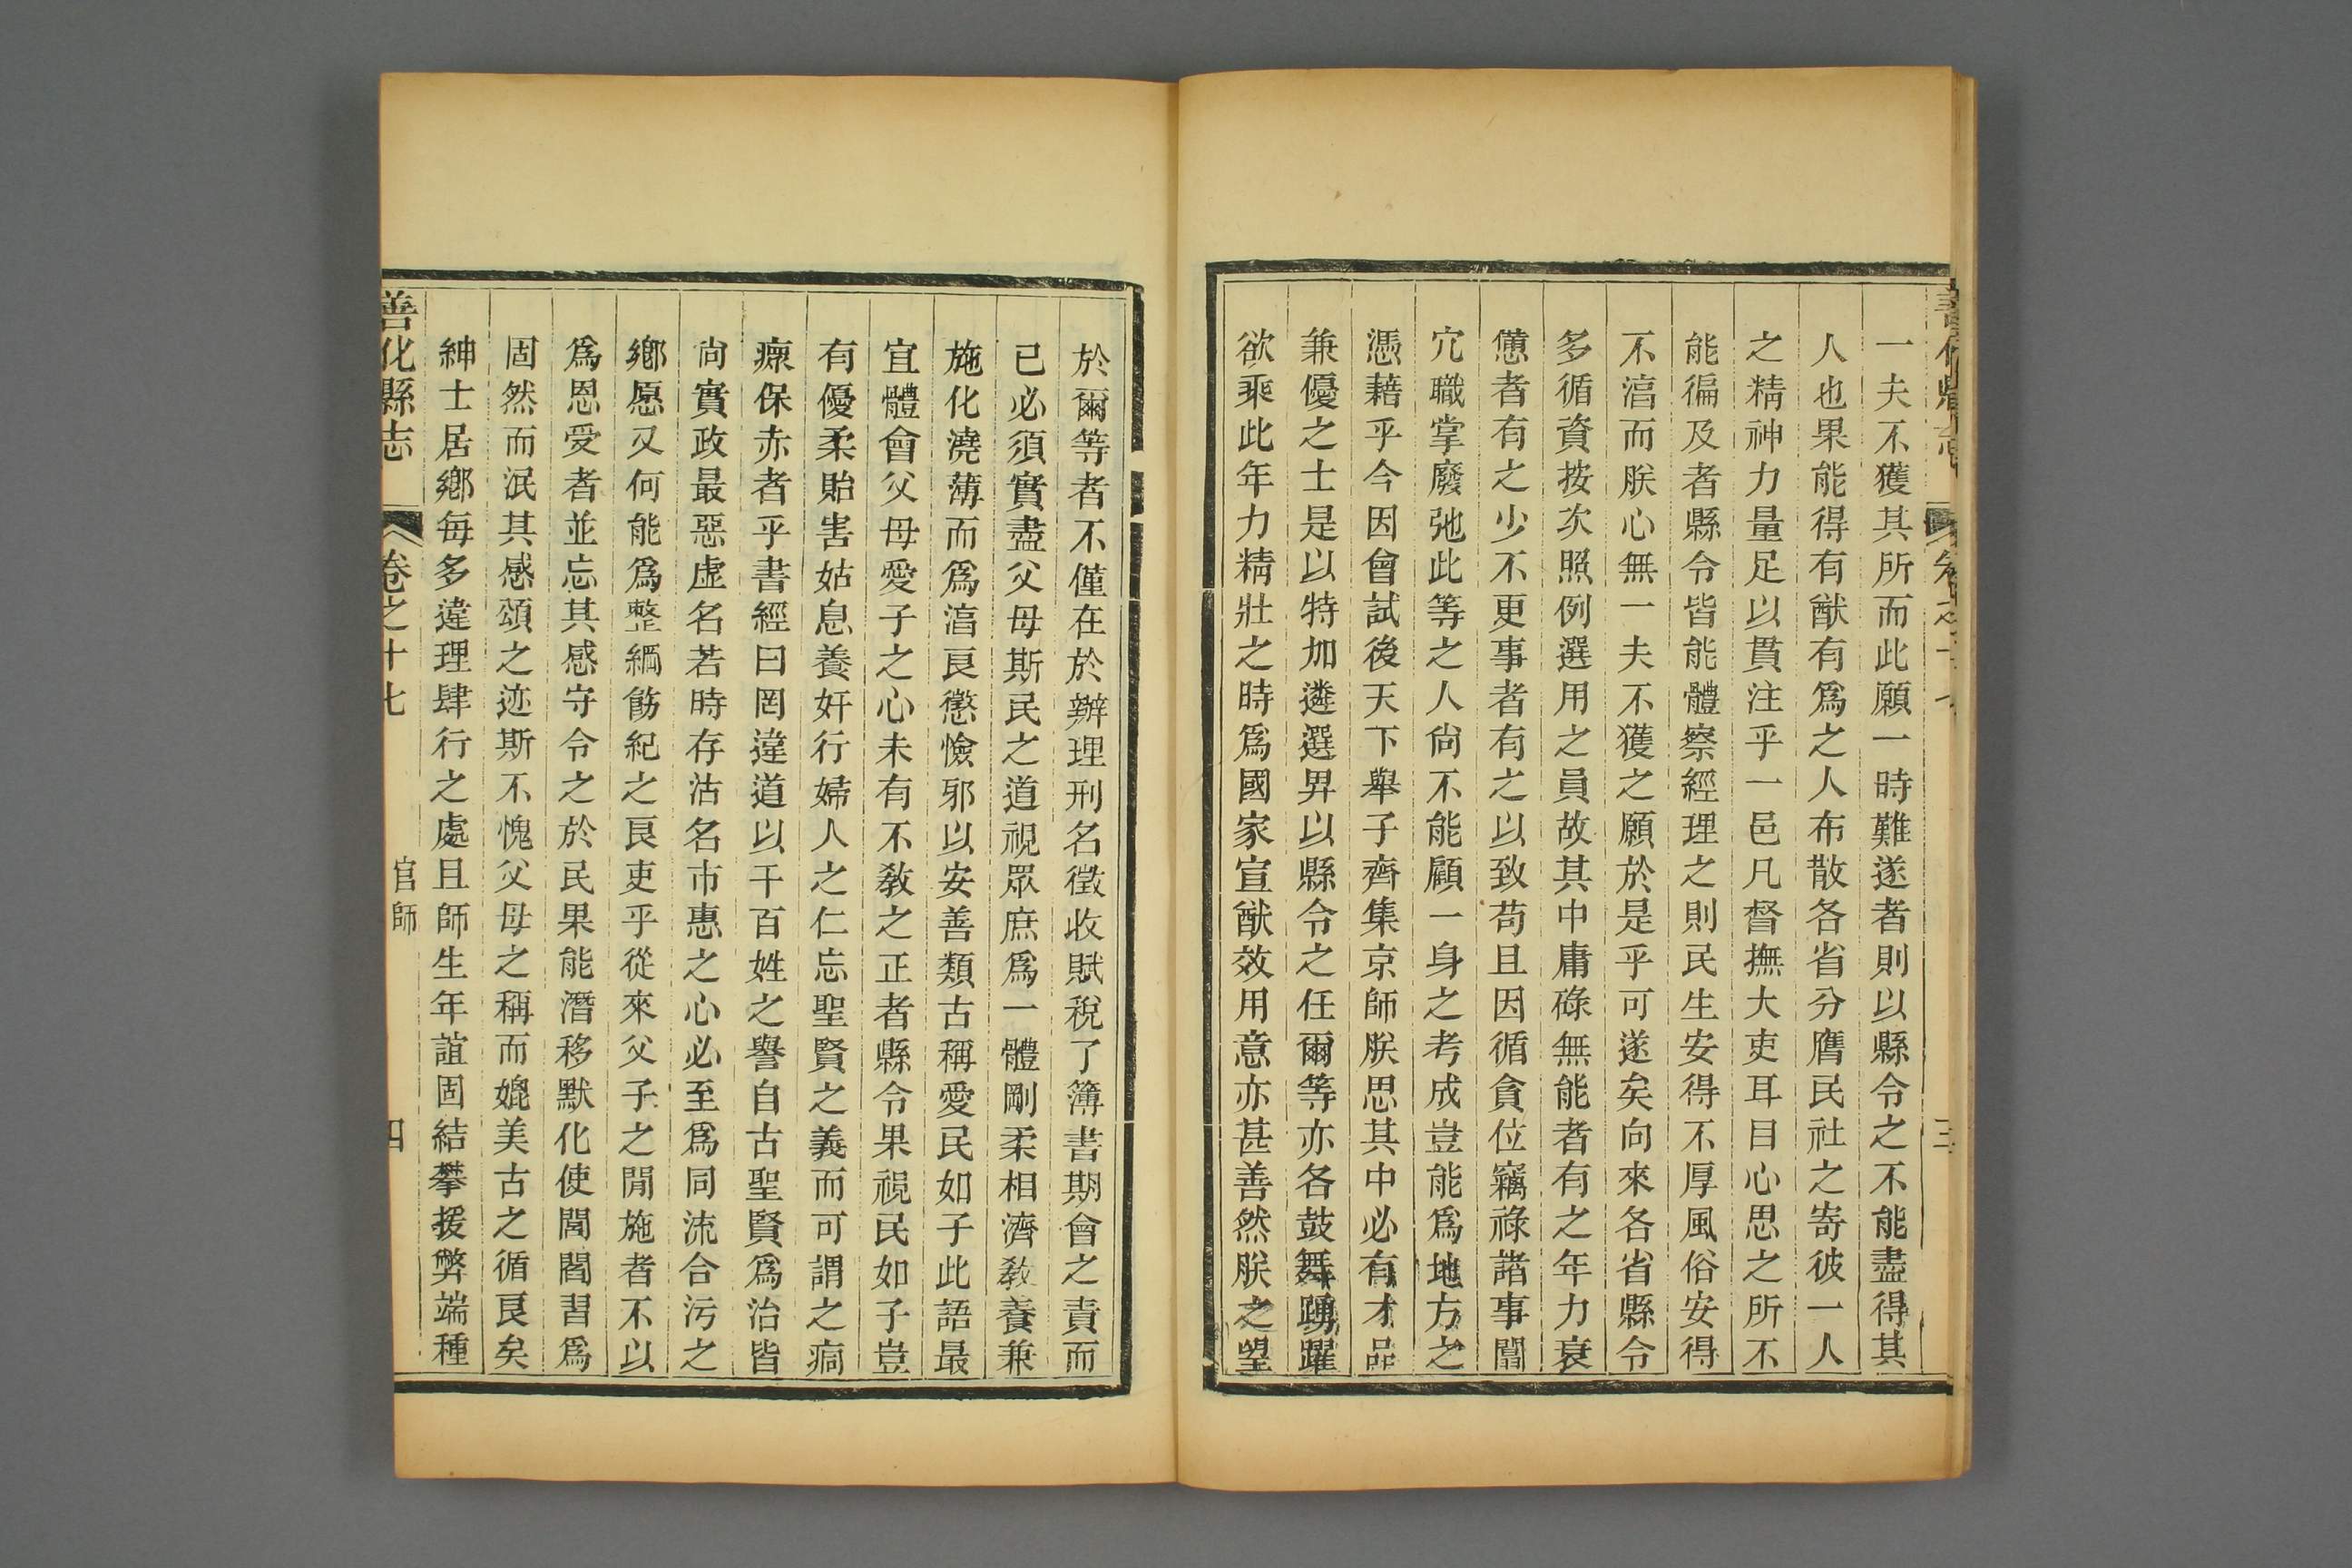 一夫不獲其所而此願一時難遂者則以縣令之不能盡得其
人也果能得有猷有爲之人布散各省分膺民社之寄彼一人
之精神力量足以貫注乎一邑凡督撫大吏耳目心思之所不
能徧及者縣令皆能體察經理之則民生安得不厚風俗安得
不淳而朕心無一夫不獲之願於是乎可遂矣向來各省縣令
多循資按次照例選用之員故其中庸碌無能者有之年力衰
憊者有之少不更事者有之以致苟且因循貪位竊祿諸事闒
宂職掌廢弛此等之人尙不能顧一身之考成豈能爲地方之
憑藉乎今因會試後天下舉子齊集京師朕思其中必有才品
兼優之士是以特加遴選畀以縣令之任爾等亦各鼓舞踴躍
欲乘此年力精壯之時爲國家宣猷效用意亦甚善然朕之望
於爾等者不僅在於辦理刑名徵收賦稅了簿書期會之責而
已必須實盡父母斯民之道視眾庶爲一體剛柔相濟敎養兼
施化澆薄而爲淳良懲憸邪以安善類古稱愛民如子此語最
宜體會父母愛子之心未有不敎之正者縣令果視民如子豈
有優柔貽害姑息養奸行婦人之仁忘聖賢之義而可謂之痌
瘝保赤者乎書經曰罔違道以干百姓之譽自古聖賢爲治皆
尙實政最惡虛名若時存沽名市惠之心必至爲同流合污之
鄉愿又何能爲整綱飭紀之良吏乎從來父子之閒施者不以
爲恩受者並忘其感守令之於民果能潛移默化使閭閻習爲
固然而泯其感頌之迹斯不愧父母之稱而媲美古之循良矣
紳士居鄉每多違理肆行之處且師生年誼固結攀援弊端種
善化縣志 卷之十七 官師 四